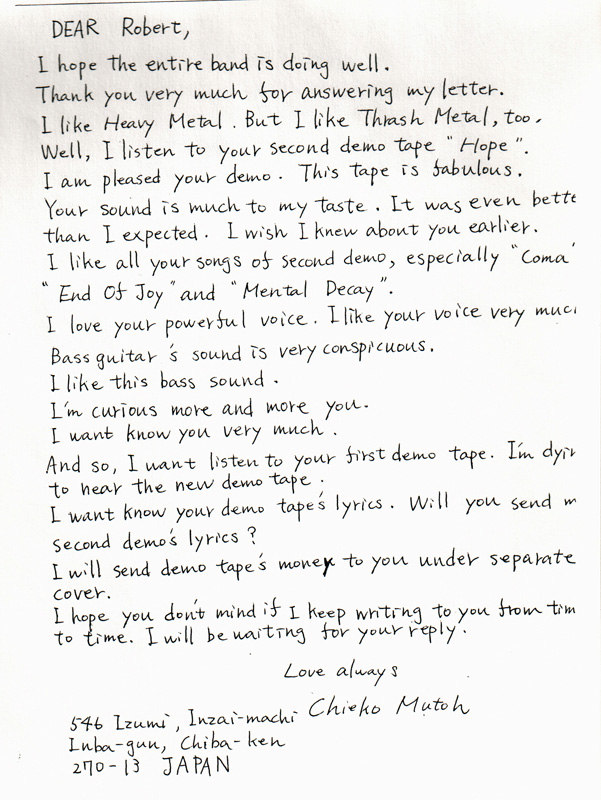 DEAR Robert,
I hope the entire band is doing well.
Thank you very much for answering my letter.
I like Heavy Metal. But I like Thrash Metal, too.
Well, I listen to your second demo tape "Hope".
I am pleased your demo. This tape is fabulous.
Your sound is much to my taste. It was even bette
than I expected. I wish I knew about you earlier.
I like all your songs of second demo, especially "Coma"
"End Of Joy" and "Mental Decay".
I love your powerful voice. I like your voice very muc
Bass guitar's sound is very conspicuous.
I like this bass sound.
I'm curious more and more you.
I want know you very much.
And so, I want listen to your first demo tape. I'm dyin
to hear the new demo tape.
I want know your demo tape's lyrics. Will you send m
second demo's lyrics?
I will send demo tape's money to you under separate
cover.
I hope you don't mind if I keep writing to you from tim
to time. I will be waiting for your reply.
Love always
Chieko Mutoh
546 Izumi, Inzai-machi
Inba-gun, Chiba-ken
270-13 JAPAN